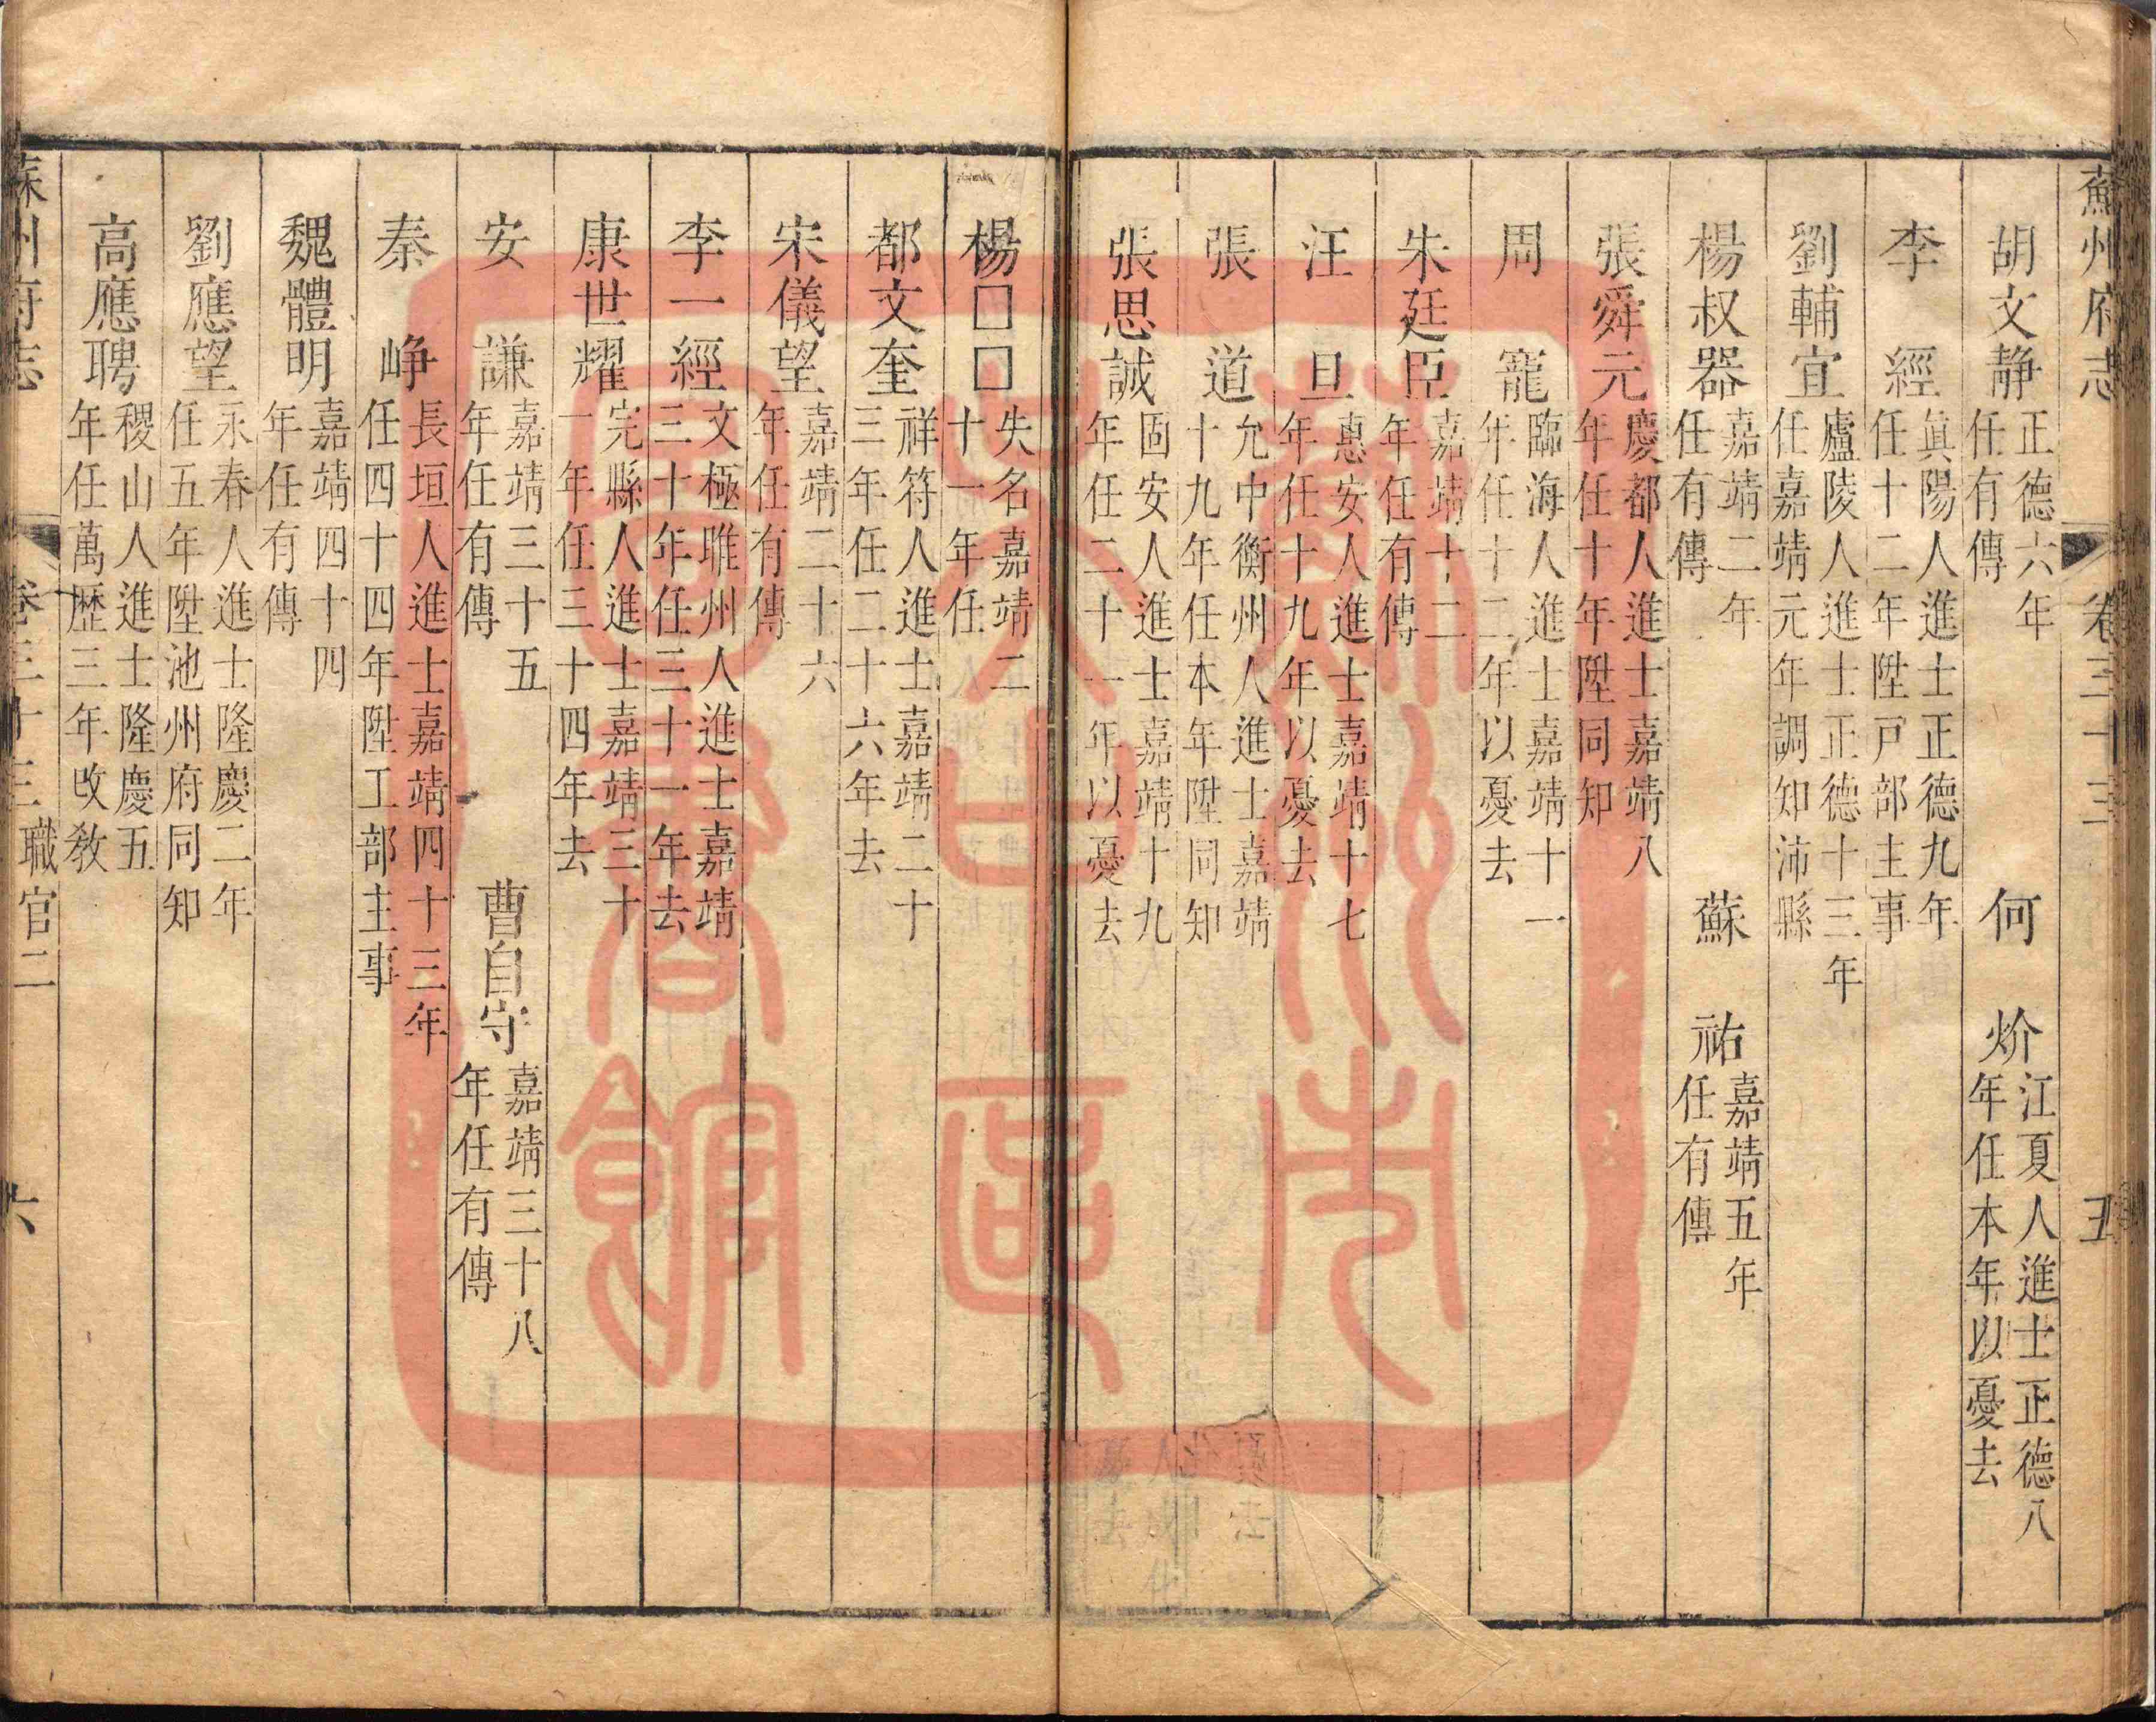 蘇州府志 卷三十三 五
胡文静 正德六年任有傳 何炌 江夏人進士正德八年任本年以憂去
李經 眞陽人進士正德九年任十二年陞戸部主事
劉輔宜 廬陵人進士正德十三年任嘉靖元年調知沛縣
楊叔器 嘉靖二年任有傳 蘇祐 嘉靖五年任有傳
張舜元 慶都人進士嘉靖八年任十年陞同知
周寵 臨海人進士嘉靖十一年任十二年以憂去
朱廷臣 嘉靖十二年任有傳
汪旦 惠安人進士嘉靖十七年任十九年以憂去
張道 允中衡州人進士嘉靖十九年任本年陞同知
張思誠 固安人進士嘉靖十九年任二十一年以憂去
楊□□ 失名嘉靖二十一年任
都文奎 祥符人進士嘉靖二十三年任二十六年去
宋儀望 嘉靖二十六年任有傳
李一經 文極睢州人進士嘉靖三十年任三十一年去
康世耀 完縣人進士嘉靖三十一年任三十四年去
安謙 嘉靖三十五年任有傳 曹自守 嘉靖三十八年任有傳
秦崢 長垣人進士嘉靖四十三年任四十四年陞工部主事
魏體明 嘉靖四十四年任有傳
劉應望 永春人進士隆慶二年任五年陞池州府同知
高應聘 稷山人進士隆慶五年任萬歷三年改敎
蘇州府志 卷三十三 職官二 六
蘇州市古舊書館